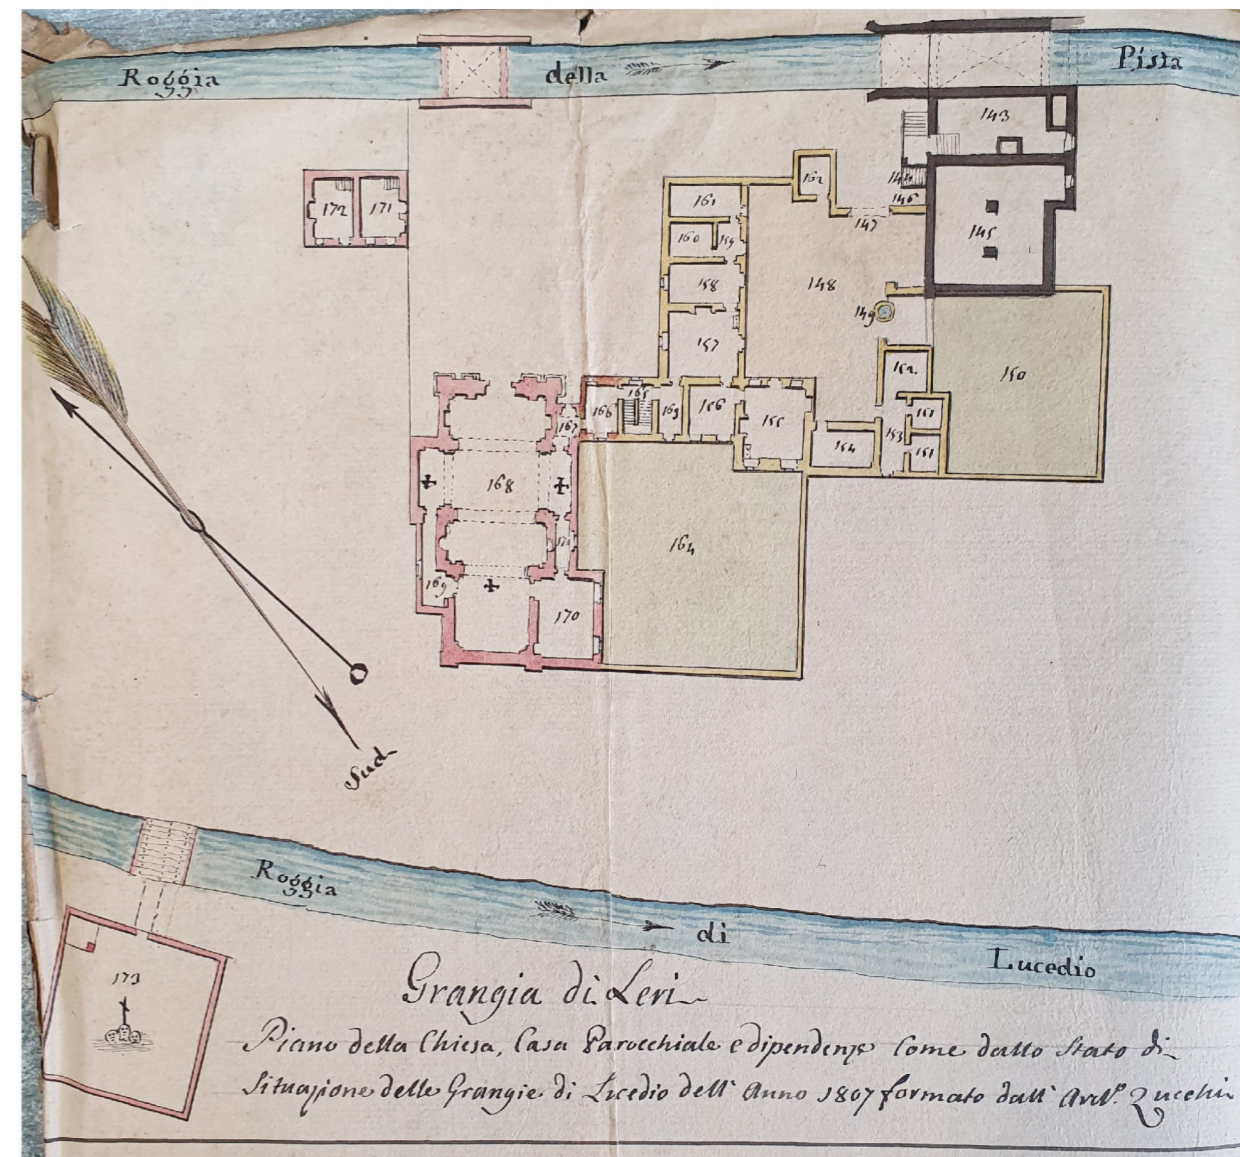 Roggia della Pista
143
144
146
162
161
172 171
147
145
160 159
158
148
149
157
150
152
165
166 163 156
155
151
167
153
154
151
168
164
169
170
Sud
Roggia di Lucedio
173
Grangia di Leri
Piano della Chiesa, Casa Parocchiale e dipendenze Come dallo Stato di
Situazione delle Grangie di Lucedio dell' Anno 1807 formato dall' Zucchi